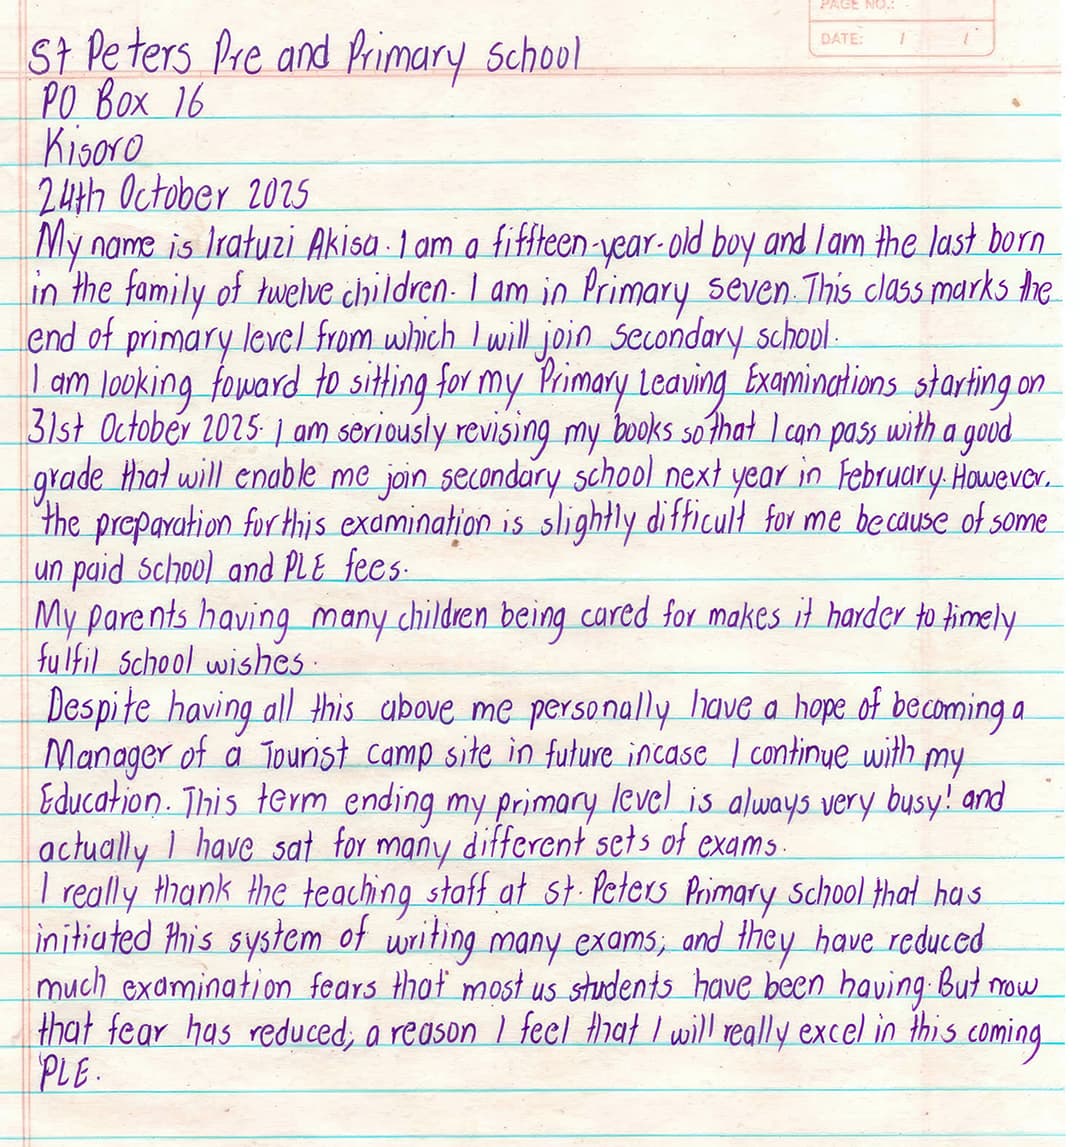 PAGE NO.:
DATE: / /
St Peters Pre and Primary School
PO Box 16
Kisoro
24th October 2025
My name is Iratuzi Akisa. I am a fiffteen-year-old boy and I am the last born
in the family of twelve children. I am in Primary seven. This class marks the
end of primary level from which I will join secondary school.
I am looking foward to sitting for my Primary Leaving Examinations starting on
31st October 2025. I am seriously revising my books so that I can pass with a good
grade that will enable me join secondary school next year in February. However,
the preparation for this examination is slightly difficult for me because of some
un paid school and PLE fees.
My parents having many children being cared for makes it harder to timely
fulfil school wishes.
Despite having all this above me personally have a hope of becoming a
Manager of a Tourist camp site in future incase I continue with my
Education. This term ending my primary level is always very busy! and
actually I have sat for many different sets of exams.
I really thank the teaching staff at st. Peters Primary school that has
initiated this system of writing many exams; and they have reduced
much examination fears that most us students have been having. But now
that fear has reduced; a reason I feel that I will really excel in this coming
PLE.